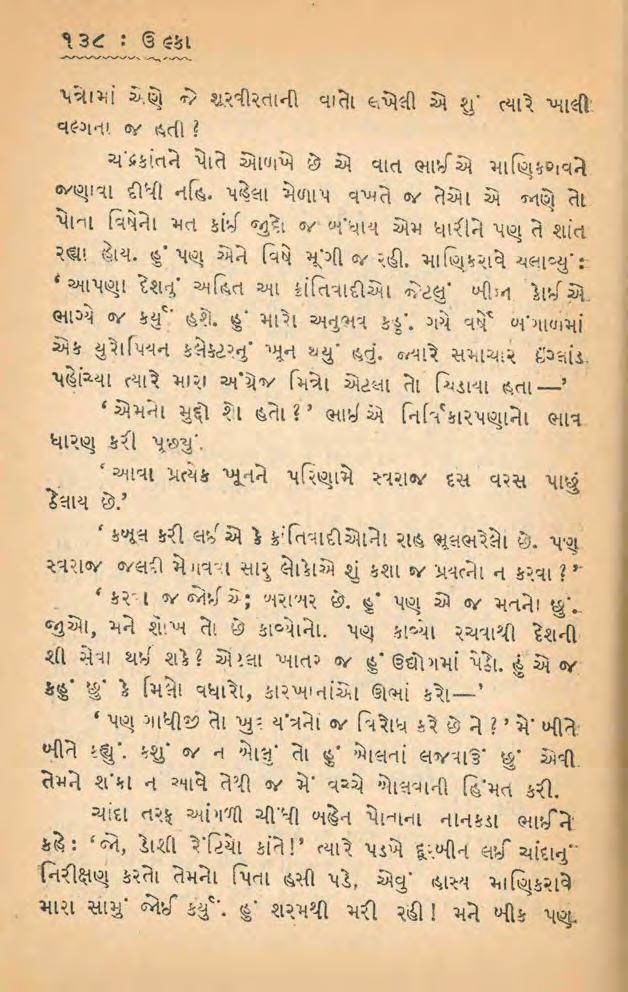 ૧૩૮ : ઉલ્કા
પત્રોમાં એણે જે શૂરવીરતાની વાતો લખેલી એ શું ત્યારે ખાલી
વલ્ગના જ હતી ?
ચંદ્રકાંતને પોતે ઓળખે છે એ વાત ભાઈએ માણિકરાવને
જણાવા દીધી નહિ. પહેલા મેળાપ વખતે જ તેઓ એ જાણે તો
પોતા વિષેનો મત કાંઈ જુદો જ બંધાય એમ ધારીને પણ તે શાંત
રહ્યા હોય. હું પણ એને વિષે મૂંગી જ રહી. માણિકરાવે ચલાવ્યું :
‘ આપણા દેશનું અહિત આ ક્રાંતિવાદીઓ જેટલું બીજા કોઈએ
ભાગ્યે જ કર્યું હશે. હું મારો અનુભવ કહું. ગયે વર્ષે બંગાળમાં
એક યુરોપિયન કલેક્ટરનું ખૂન થયું હતું. જ્યારે સમાચાર ઈંગ્લાંડ
પહોંચ્યા ત્યારે મારા અંગ્રેજ મિત્રો એટલા તો ચિડાયા હતા —’
‘ એમનો મુદ્દો શો હતો ? ’ ભાઈએ નિર્વિકારપણાનો ભાવ
ધારણ કરી પૂછ્યું.
‘ આવા પ્રત્યેક ખૂનને પરિણામે સ્વરાજ દસ વરસ પાછું
ઠેલાય છે.’
‘ કબૂલ કરી લઈએ કે ક્રાંતિવાદીઓનો રાહ ભૂલભરેલો છે. પણ
સ્વરાજ જલદી મેળવવા સારુ લોકોએ શું કશા જ પ્રયત્નો ન કરવા ? ’
‘ કરવા જ જોઈએ; બરાબર છે. હું પણ એ જ મતનો છું.
જુઓ, મને શોખ તો છે કાવ્યોનો. પણ કાવ્યો રચવાથી દેશની
શી સેવા થઈ શકે ? એટલા ખાતર જ હું ઉદ્યોગમાં પેઠો. હું એ જ
કહું છું કે મિલો વધારો, કારખાનાંઓ ઊભાં કરો —’
‘ પણ ગાંધીજી તો ખુદ યંત્રનો જ વિરોધ કરે છે ને ? ’ મેં બીતે
બીતે કહ્યું. કશું જ ન બોલું તો હું બોલતાં લજવાઉં છું એવી
તેમને શંકા ન આવે તેથી જ મેં વચ્ચે બોલવાની હિંમત કરી.
ચાંદા તરફ આંગળી ચીંધી બહેન પોતાના નાનકડા ભાઈને
કહે : ‘જો, ડોશી રેંટિયો કાંતે!’ ત્યારે પડખે દૂરબીન લઈ ચાંદાનું
નિરીક્ષણ કરતો તેમનો પિતા હસી પડે, એવું હાસ્ય માણિકરાવે
મારા સામું જોઈ કર્યું. હું શરમથી મરી રહી ! મને બીક પણ